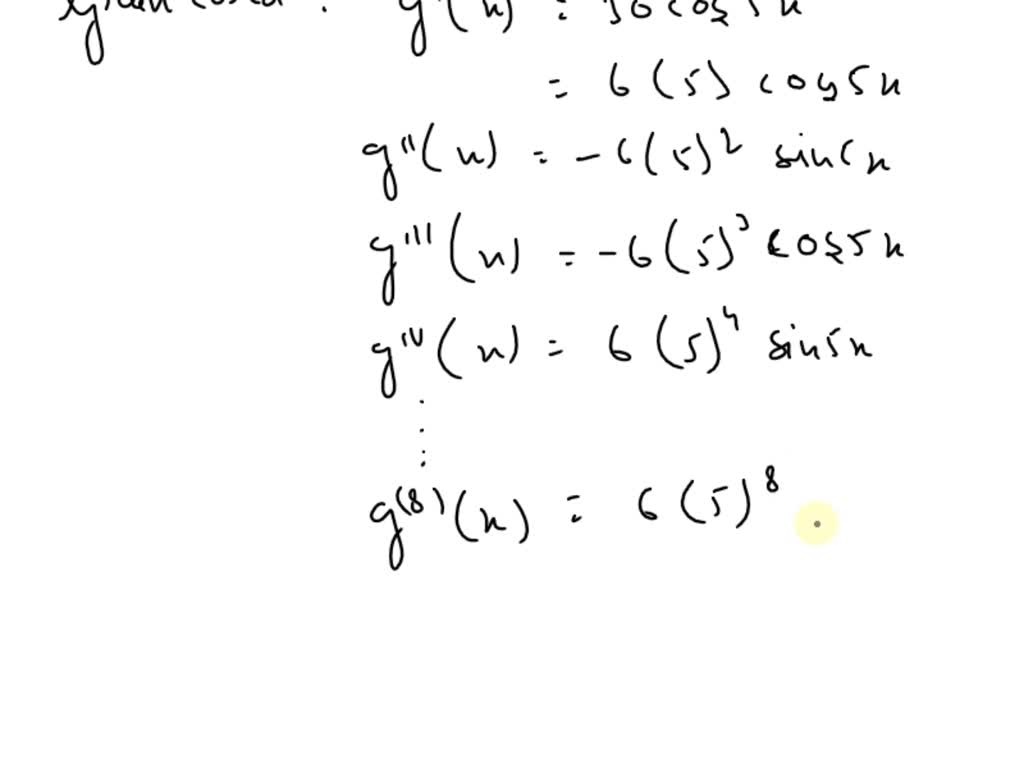 g'(x) = 30 cos 5x
= 6(5) cos5x
g''(x) = -6(5)² sin5x
g'''(x) = -6(5)³ cos5x
g^iv(x) = 6(5)⁴ sin5x
⋮
g^(8)(x) = 6(5)⁸